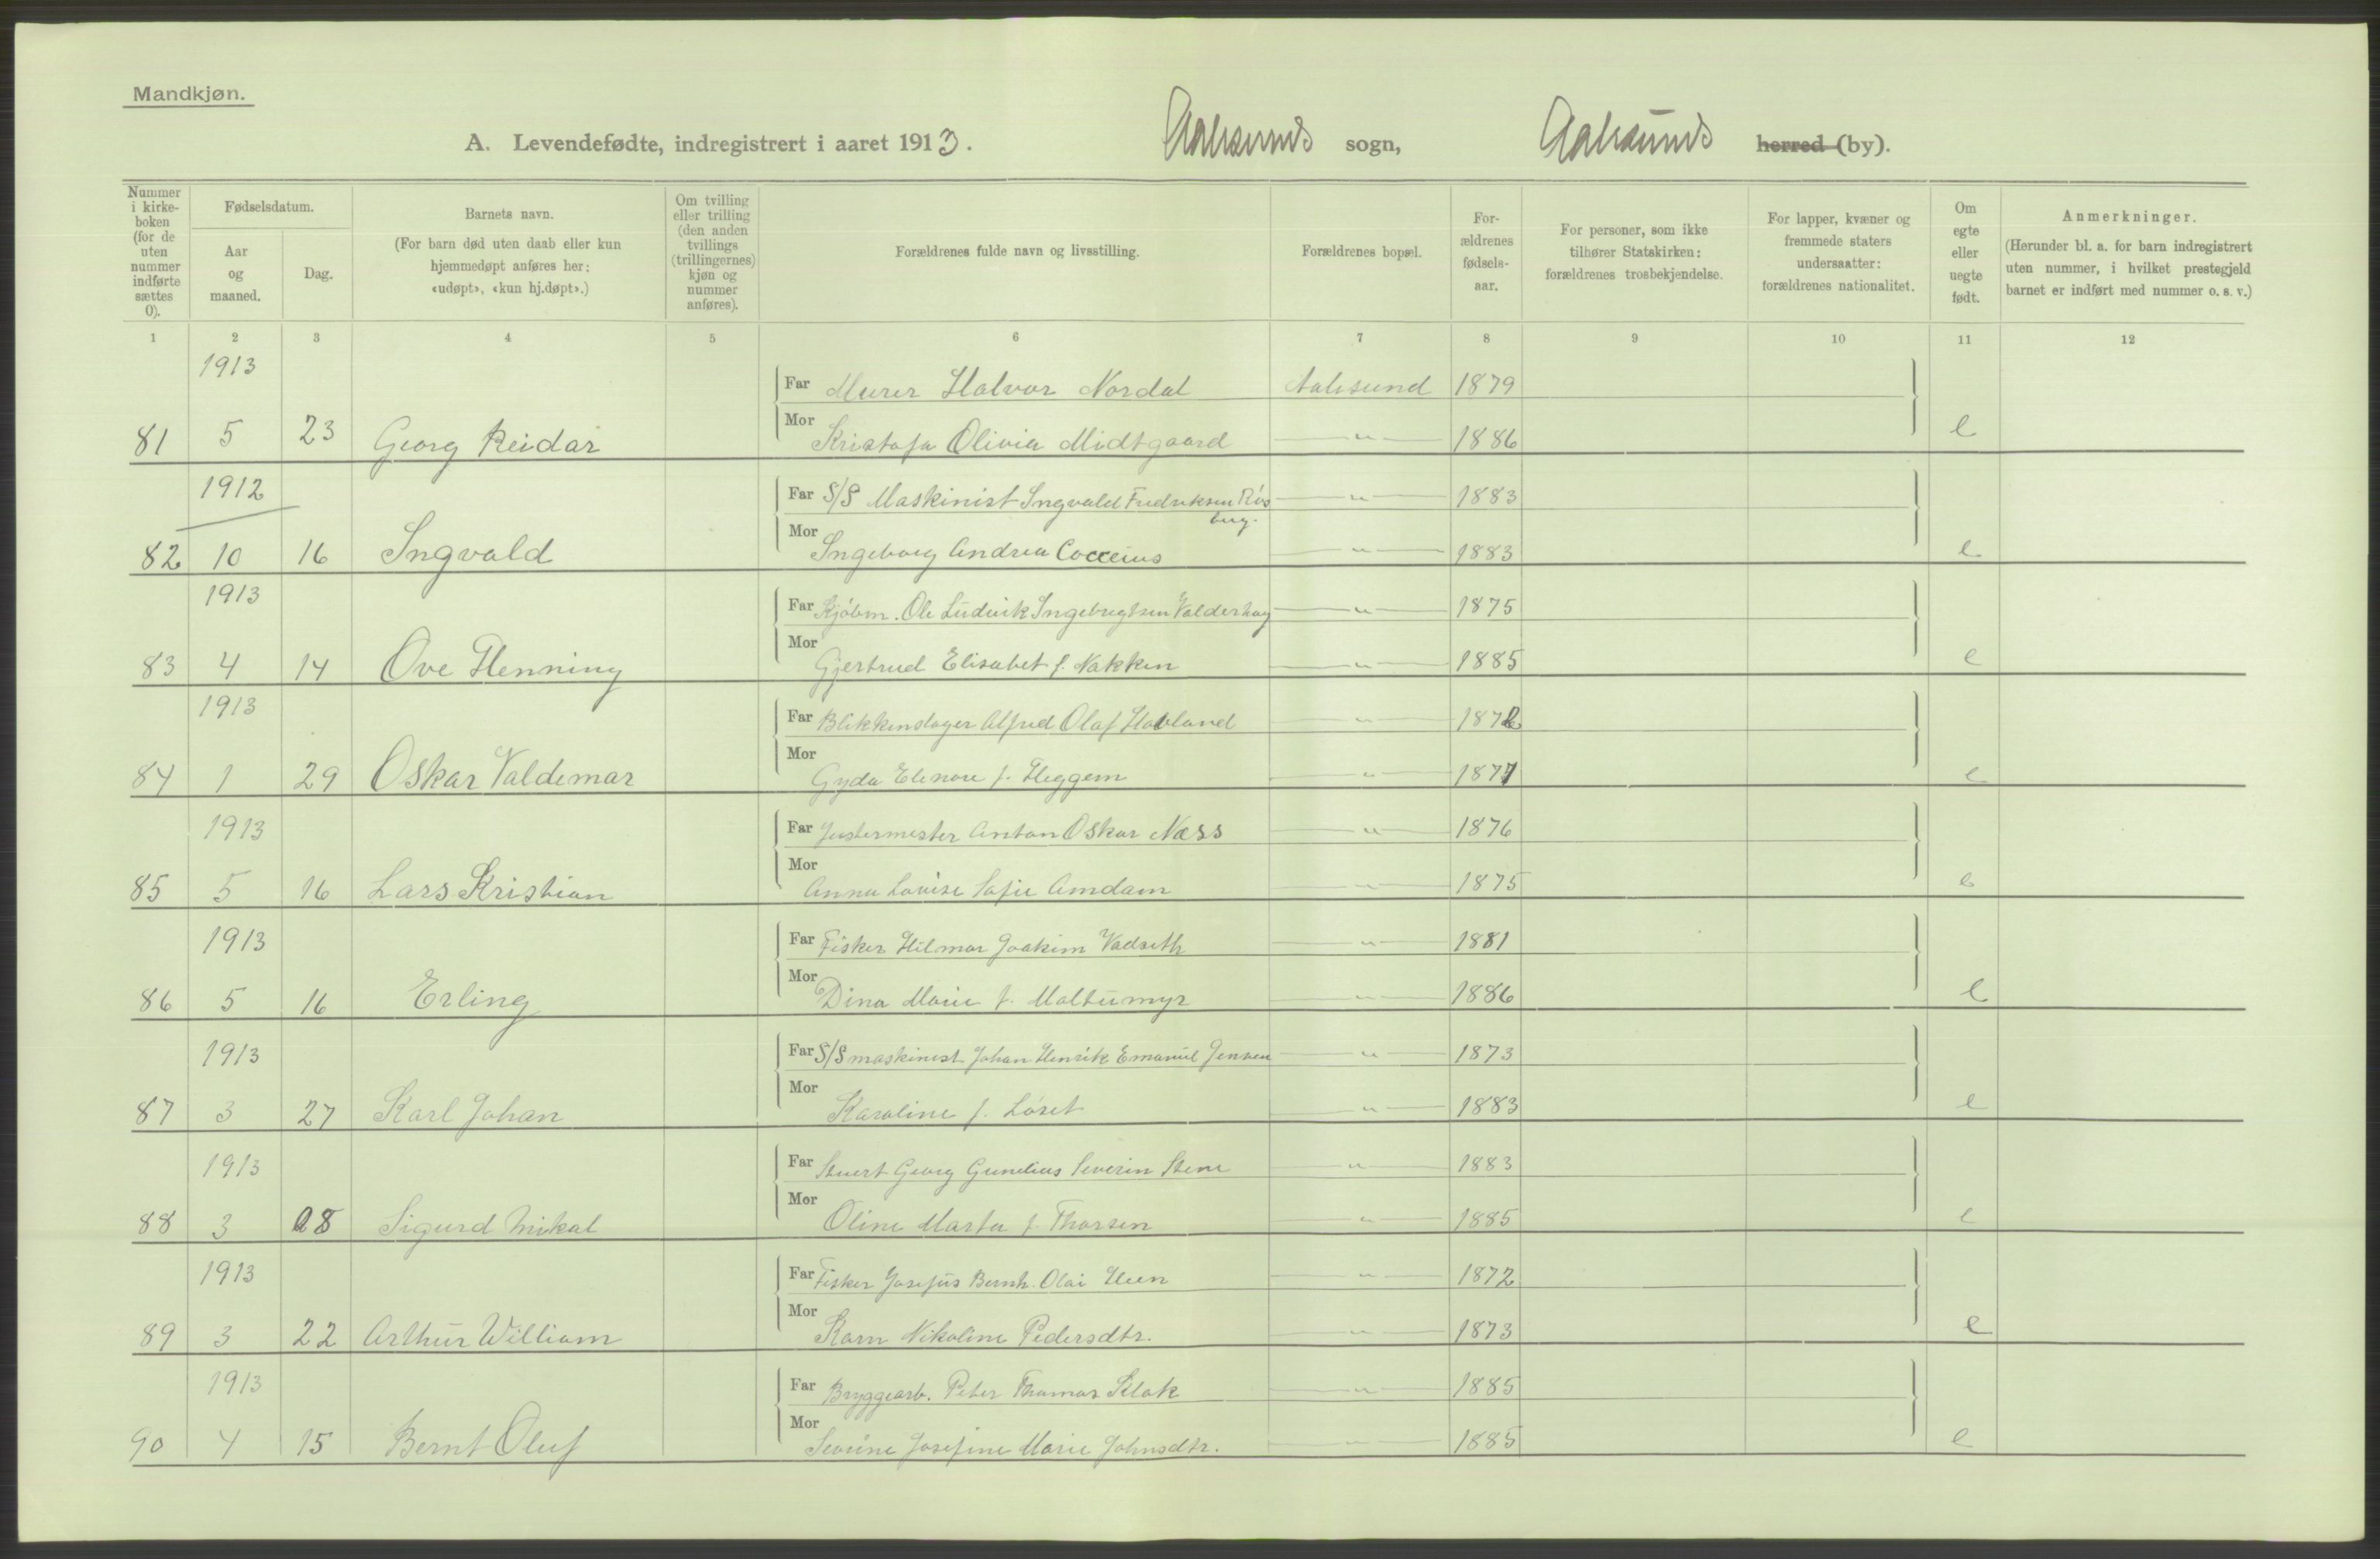 Mandkjøn.
A. Levendefødte, indregistrert i aaret 1913. Aalesunds sogn, Aalesunds herred (by).
Nummer i kirkeboken (for de uten nummer indførte sættes 0).
Fødselsdatum.
Aar og maaned.
Dag.
Barnets navn.
(For barn død uten daab eller kun hjemmedøpt anføres her: «udøpt», «kun hj.døpt».)
Om tvilling eller trilling (den anden tvillings (trillingernes) kjøn og nummer anføres).
Forældrenes fulde navn og livsstilling.
Forældrenes bopæl.
Forældrenes fødselsaar.
For personer, som ikke tilhører Statskirken: forældrenes trosbekjendelse.
For lapper, kvæner og fremmede staters undersaatter: forældrenes nationalitet.
Om egte eller uegte født.
Anmerkninger.
(Herunder bl. a. for barn indregistrert uten nummer, i hvilket prestegjeld barnet er indført med nummer o. s. v.)
1 2 3 4 5 6 7 8 9 10 11 12
1913 Far Murer Halvor Nordal Aalesund 1879
81 5 23 Georg Reidar Mor Kristofa Olivia Midtgaard " 1886 e
1912 Far S/S Maskinist Ingvald Fredriksen Rís " 1883
berg.
82 10 16 Ingvald Mor Ingeborg Andrea Cocceius " 1883 e
1913 Far Kjøbm. Ole Ludvik Ingebrigtsen Valderhaug " 1875
83 4 14 Ove Henning Mor Gjertrud Elisabet f. Nakken " 1885 e
1913 Far Blikkenslager Alfred Olaf Hovland " 1872
84 1 29 Oskar Valdemar Mor Gyda Elenore f. Heggem " 1877 e
1913 Far Justermester Anton Oskar Næss " 1876
85 5 16 Lars Kristian Mor Anna Lovise Sofie Amdam " 1875 e
1913 Far Fisker Hilmar Joakim Vadseth " 1881
86 5 16 Erling Mor Dina Marie f. Molturmyr " 1886 e
1913 Far S/S maskinist Johan Henrik Emanuel Jensen " 1873
87 3 27 Karl Johan Mor Karoline f. Løset " 1883 e
1913 Far Stuert Georg Gunelius Severin Stene " 1883
88 3 28 Sigurd Mikal Mor Oline Marta f. Thorsen " 1885 e
1913 Far Fisker Josefus Bernh. Olai Heen " 1872
89 3 22 Arthur William Mor Karn Nikoline Pedersdtr. " 1873 e
1913 Far Bryggearb. Peter Thomas Klok " 1885
90 4 15 Bernt Oluf Mor Severine Josefine Marie Johnsdtr. " 1885 e